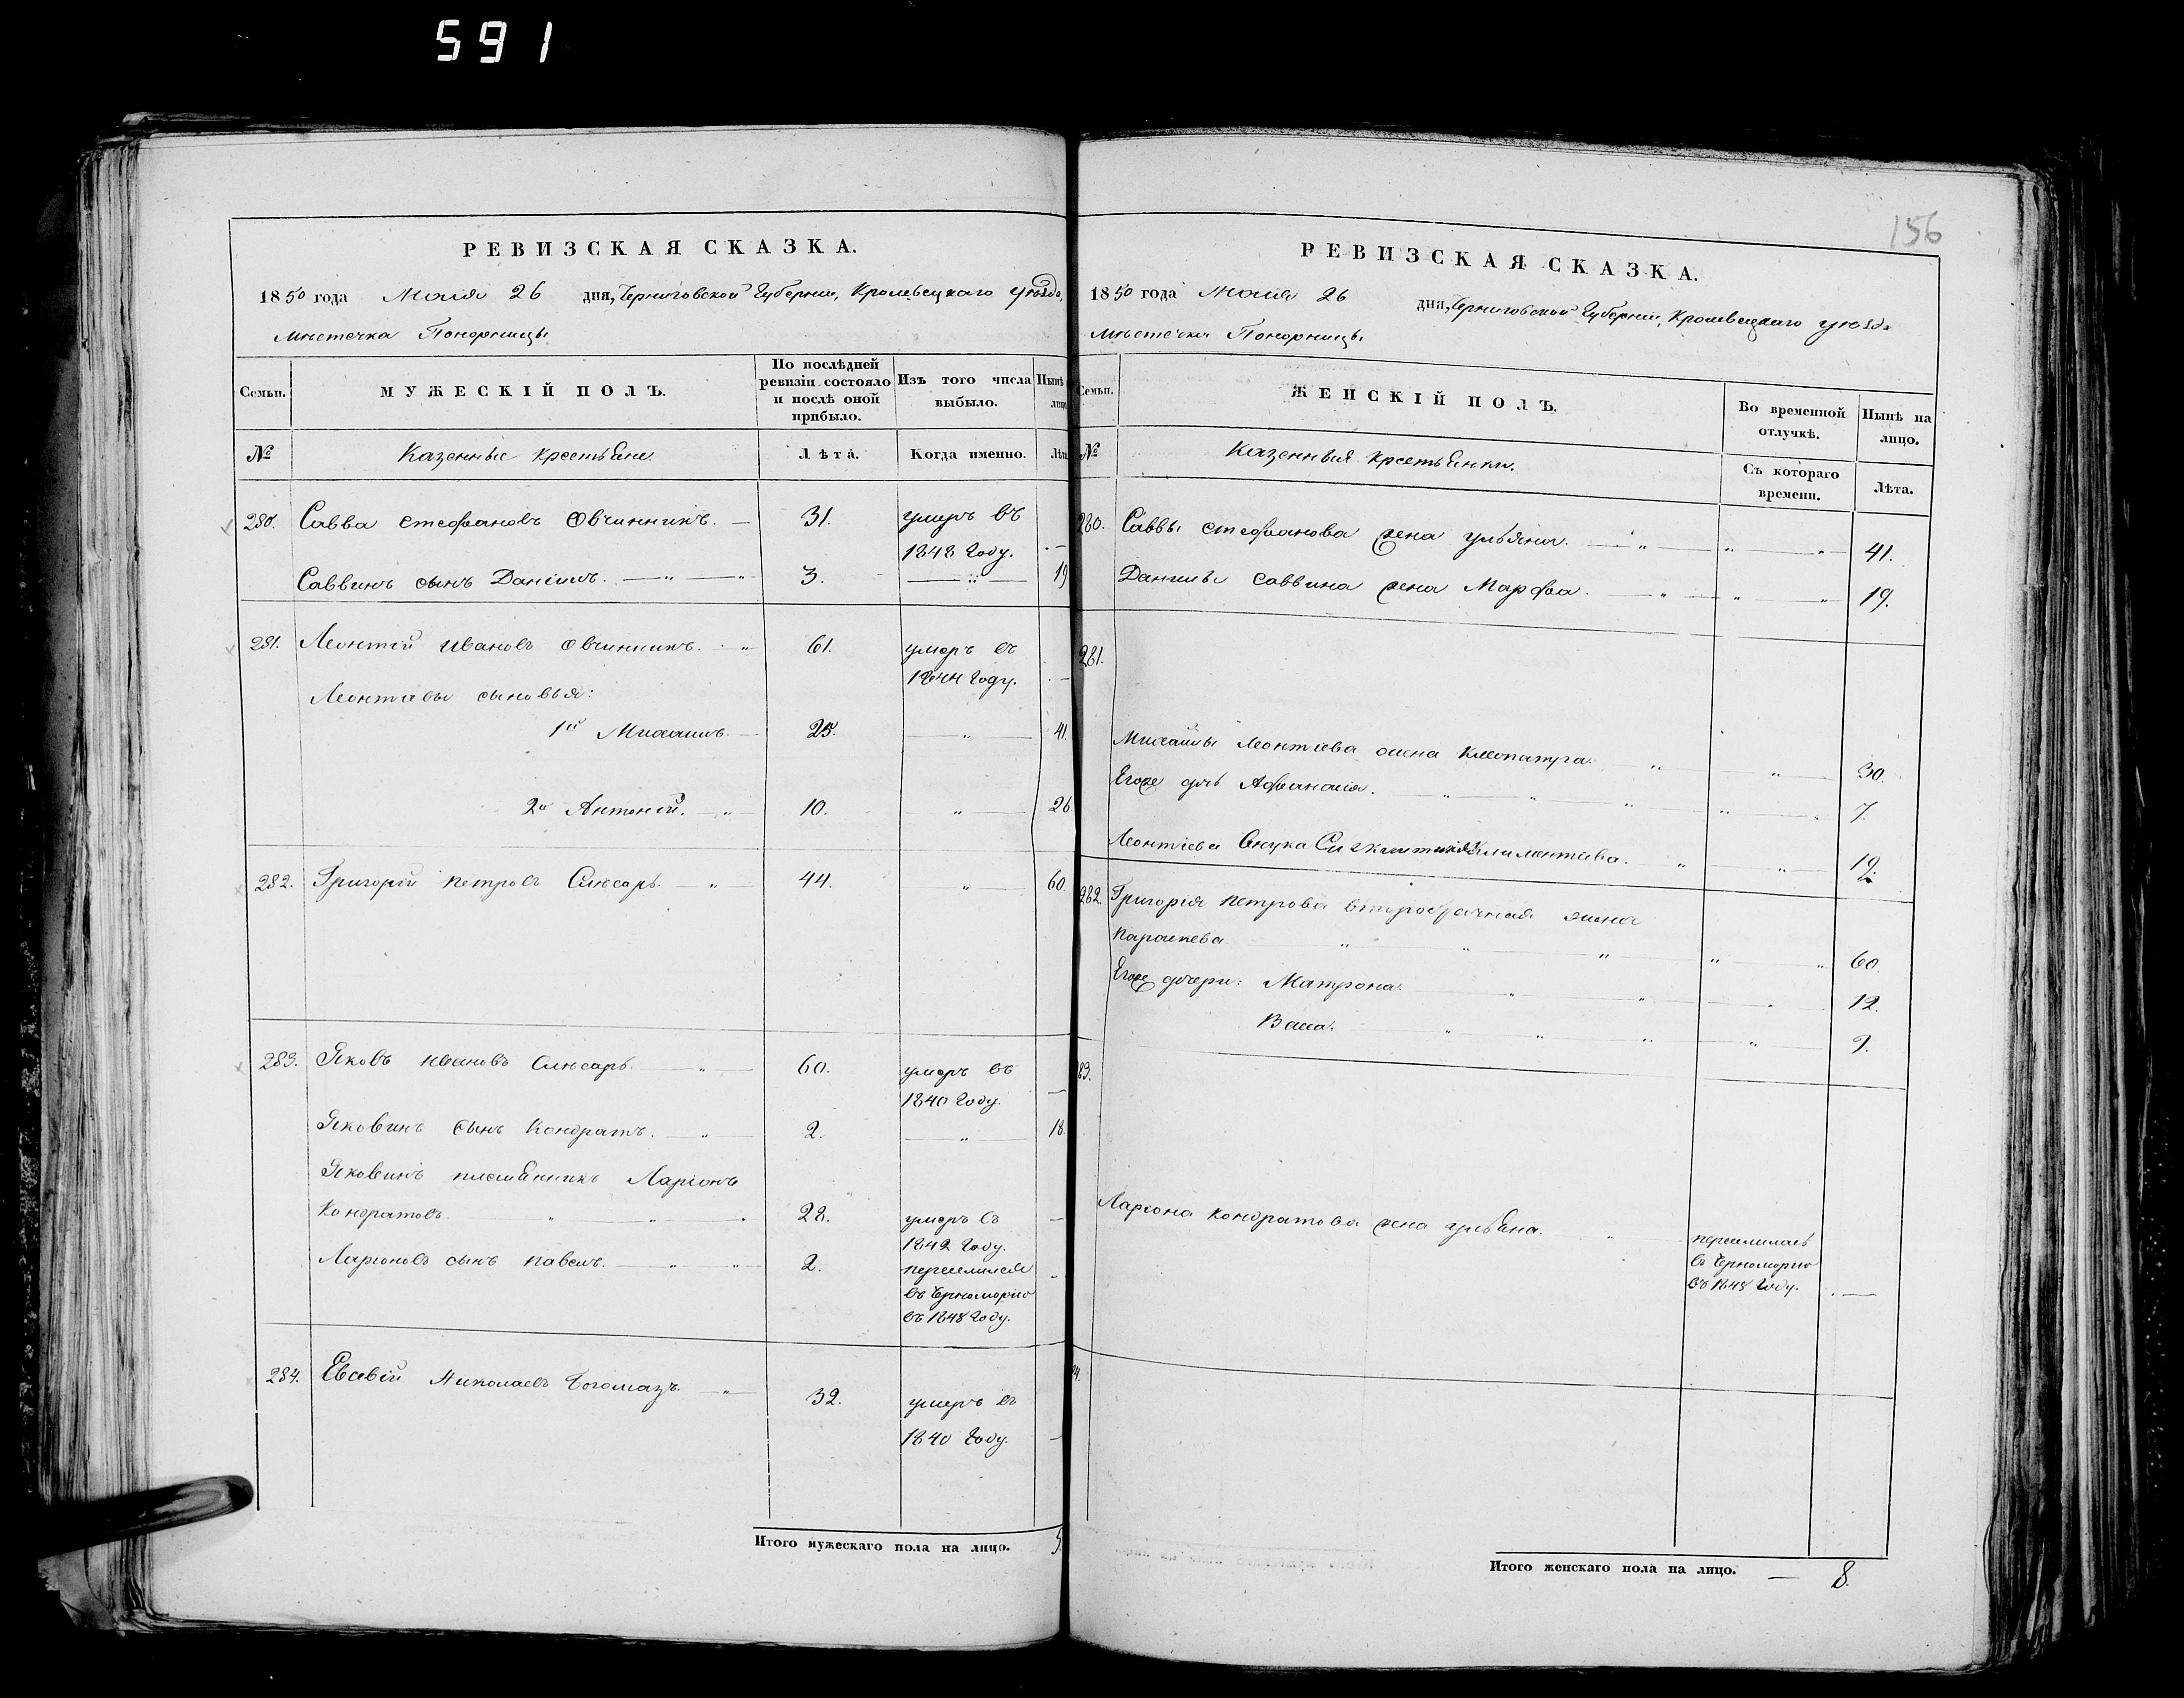 591
РЕВИЗСКАЯ СКАЗКА.
1850 года Маія 26 дня, Черниговской Губерніи, Кролевецкаго уѣзда,
мѣстечка Понорницы
Семьи.
МУЖЕСКІЙ ПОЛЪ.
По послѣдней ревизіи состояло и послѣ оной прибыло.
Изъ того числа выбыло.
Нынѣ лицо
№
Казенные крестьяне.
Лѣта.
Когда именно.
Лѣта
280. Савва Стефановъ Овчинникъ. — 31. умеръ въ
1848 году. —
Саввинъ сынъ Даніилъ. — 3. — 19
281. Леонтій Ивановъ Овчинникъ. 61. умеръ въ
1844 году. —
Леонтіевы сыновья:
1й Михаилъ. — 25. — 41.
2й Антоній. — 10. — 26
282. Григорій Петровъ Слѣсарь. — 44. 60.
283. Яковъ Ивановъ Слѣсарь. — 60. умеръ въ
1840 году. —
Яковинъ сынъ Кондратъ. — 2. — 18.
Яковинъ племѣнникъ Ларіонъ
Кондратовъ 28. умеръ въ —
1842 году.
Ларіоновъ сынъ Павелъ. — 2. переселился
въ Черноморію
въ 1848 году.
284. Евсевій Николаевъ Богомазъ. — 32. умеръ въ
1840 году. —
Итого мужескаго пола на лицо. 5.
156
РЕВИЗСКАЯ СКАЗКА.
1850 года Маія 26 дня, Черниговской Губерніи, Кролевецкаго уѣзда
мѣстечка Понорницы
Семьи.
ЖЕНСКІЙ ПОЛЪ.
Во временной отлучкѣ.
Нынѣ на лицо.
№
Казенныя крестьянки.
Съ котораго времени.
Лѣта.
280. Саввы Стефанова жена Ульяна. — 41.
Даниилы Саввина жена Марфа. — 19.
281.
Михаилы Леонтіева жена Клеопатра. 30.
Егоже дочь Афанасія. 7.
Леонтіева внука Климентіева. 19.
282. Григорія Петрова второбрачная жена
Параскева 60.
Егоже дочери: Матрона. 12.
Васса. 9.
83.
Ларіона Кондратова жена Ульяна. переселилась
въ Черноморію
въ 1848 году. —
84.
Итого женскаго пола на лицо. — 8.